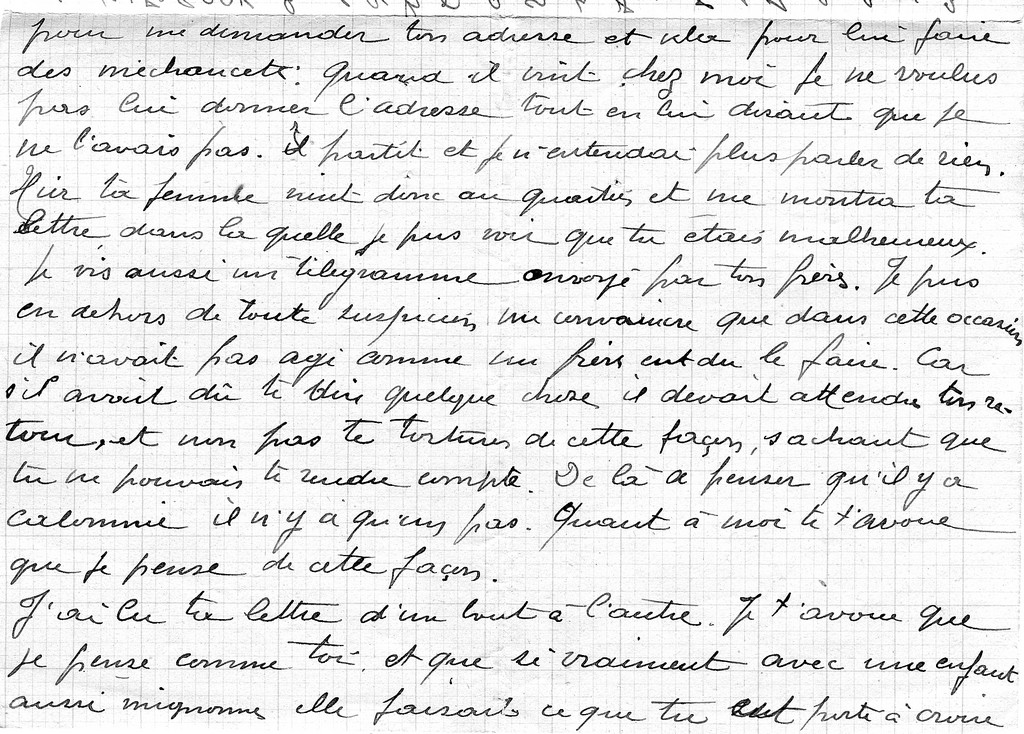 pour me demander ton adresse et cela pour lui faire
des mechancetés. Quand il vint chez moi je ne voulus
pas lui donner l'adresse tout en lui disant que je
ne l'avais pas. il partit et je n'entendai plus parler de rien.
Hier ta femme vint donc au quartier et me montra ta
lettre dans la quelle je pus voir que tu étais malheureux.
Je vis aussi un télégramme envoyé par ton frère. Je puis
en dehors de toute suspicion me convaincre que dans cette occasion
il n'avait pas agi comme un frère eut du le faire. Car
s'il avait dû te dire quelque chose il devait attendre ton re-
tour, et non pas te torturer de cette façon, sachant que
tu ne pouvais te rendre compte. De là à penser qu'il y a
calomnie il n'y a qu'un pas. Quant à moi je t'avoue
que je pense de cette façon.
J'ai lu ta lettre d'un bout à l'autre. Je t'avoue que
je pense comme toi et que si vraiment avec une enfant
aussi mignonne elle faisait ce que tu porte à croire